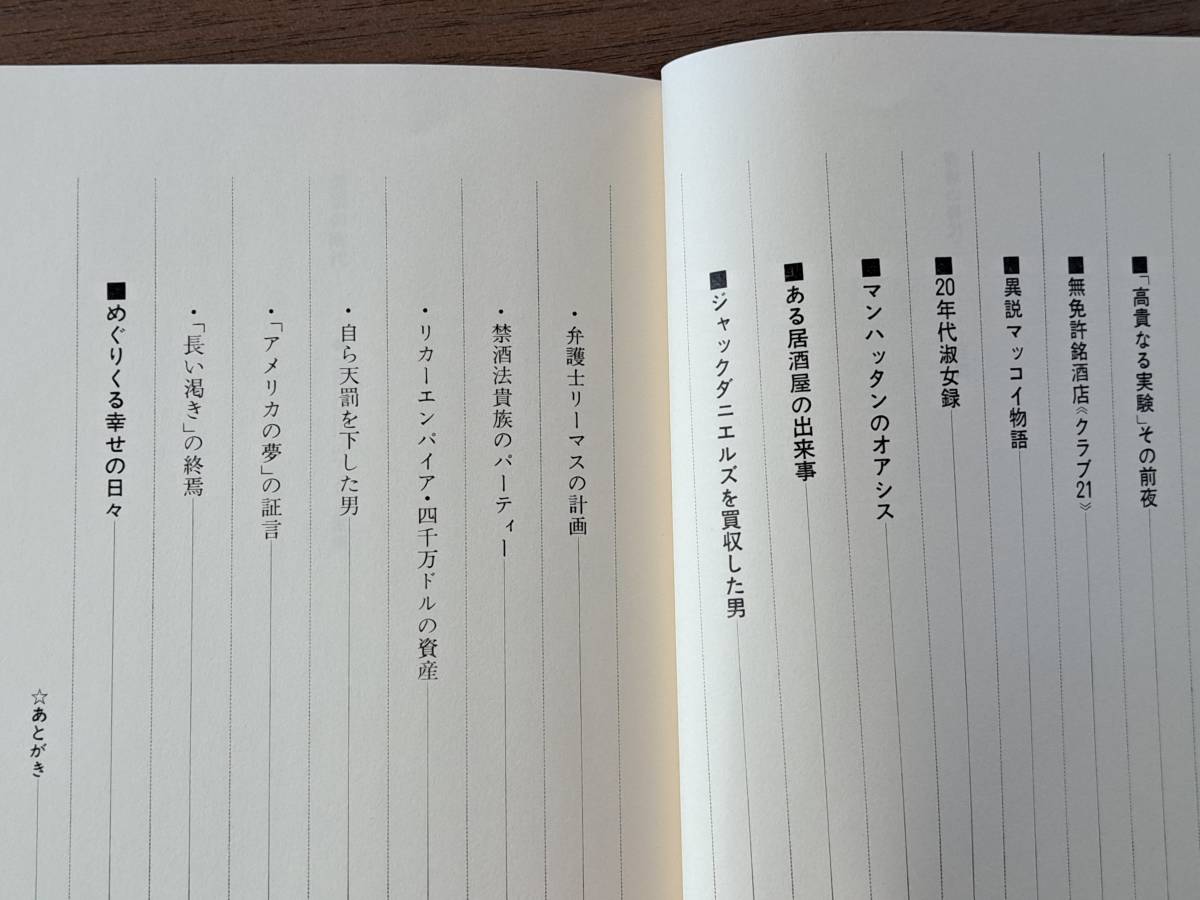 「高貴なる実験」その前夜
無免許銘酒店《クラブ21》
異説マッコイ物語
20年代淑女録
マンハッタンのオアシス
ある居酒屋の出来事
ジャックダニエルズを買収した男
・弁護士リーマスの計画
・禁酒法貴族のパーティー
・リカーエンパイア・四千万ドルの資産
・自ら天罰を下した男
・「アメリカの夢」の証言
・「長い渇き」の終焉
めぐりくる幸せの日々
☆あとがき